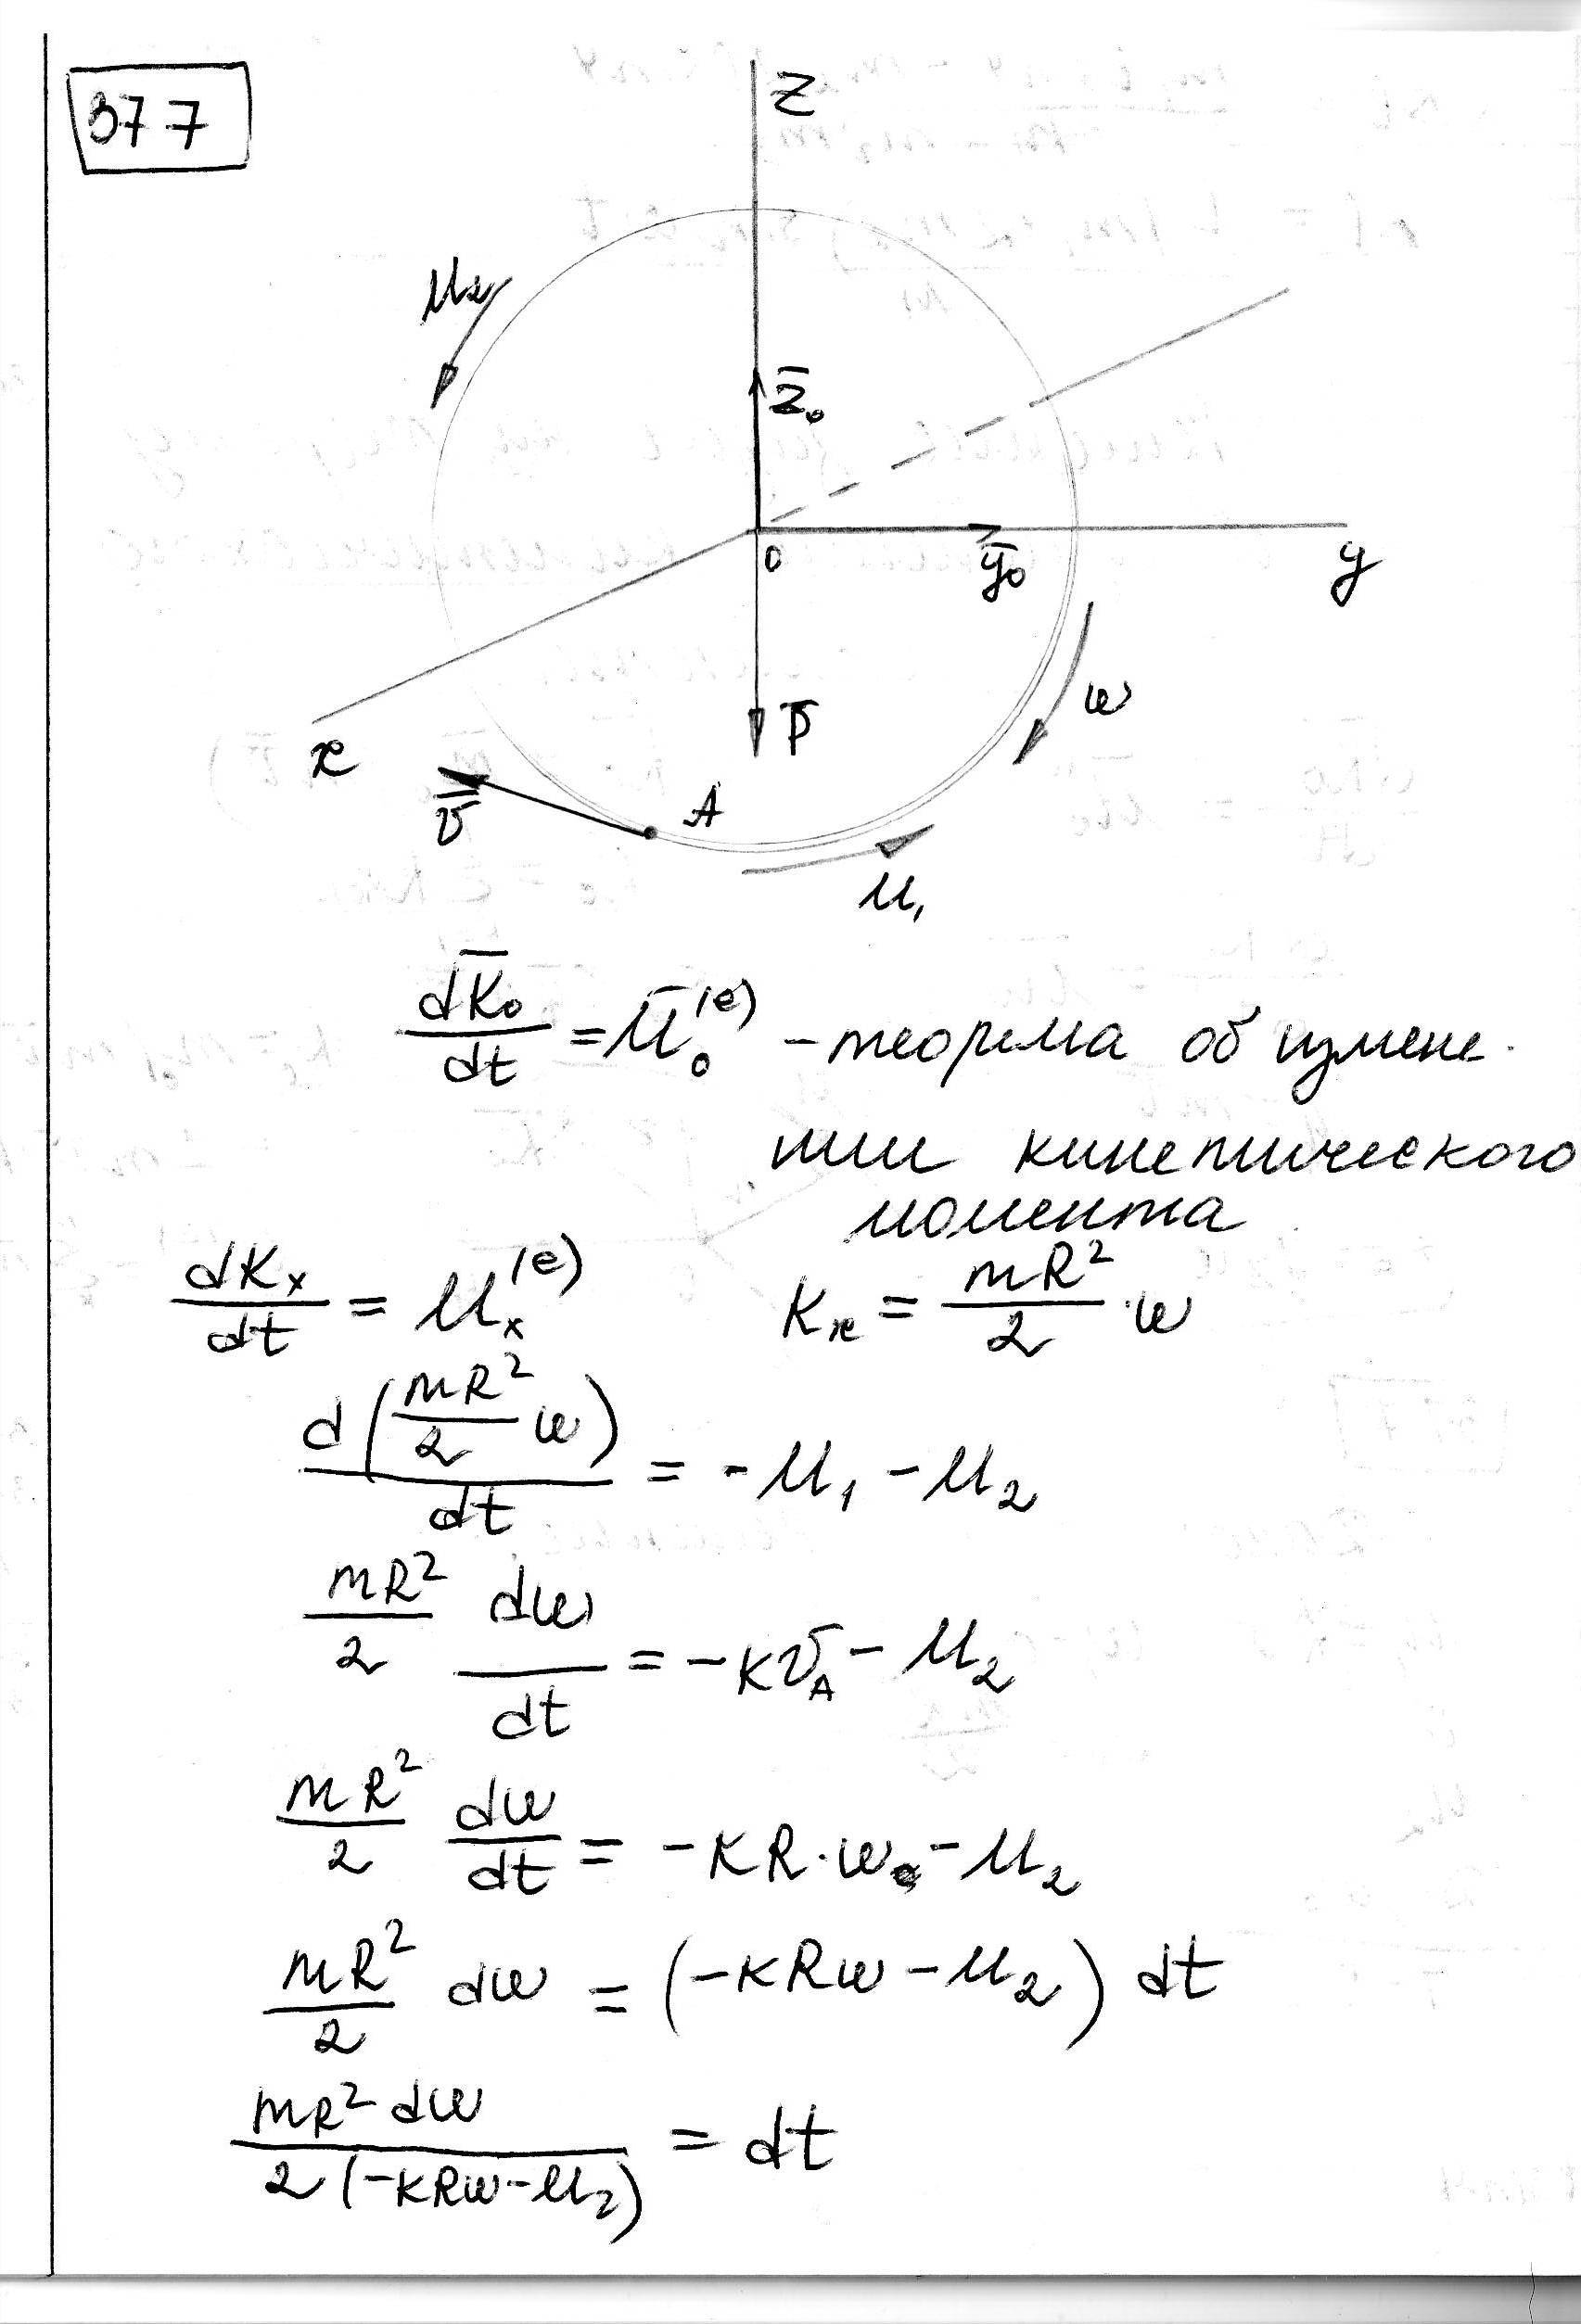 377
z
M₂
z̄₀
0
ȳ₀
y
ω
P̄
x
v̄
A
M₁
dK̄₀/dt = M̄₀⁽ᵉ⁾ – теорема об измене-
нии кинетического
момента
dKₓ/dt = Mₓ⁽ᵉ⁾ Kₓ = mR²/2 · ω
d(mR²/2 ω)/dt = -M₁ - M₂
mR²/2 dω/dt = -kv_A - M₂
mR²/2 dω/dt = -kR·ω - M₂
mR²/2 dω = (-kRω - M₂) dt
mR² dω / 2(-kRω - M₂) = dt